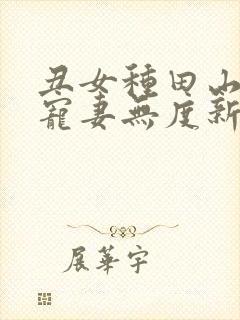 丑女種田山
寵妻無度新
展華宇